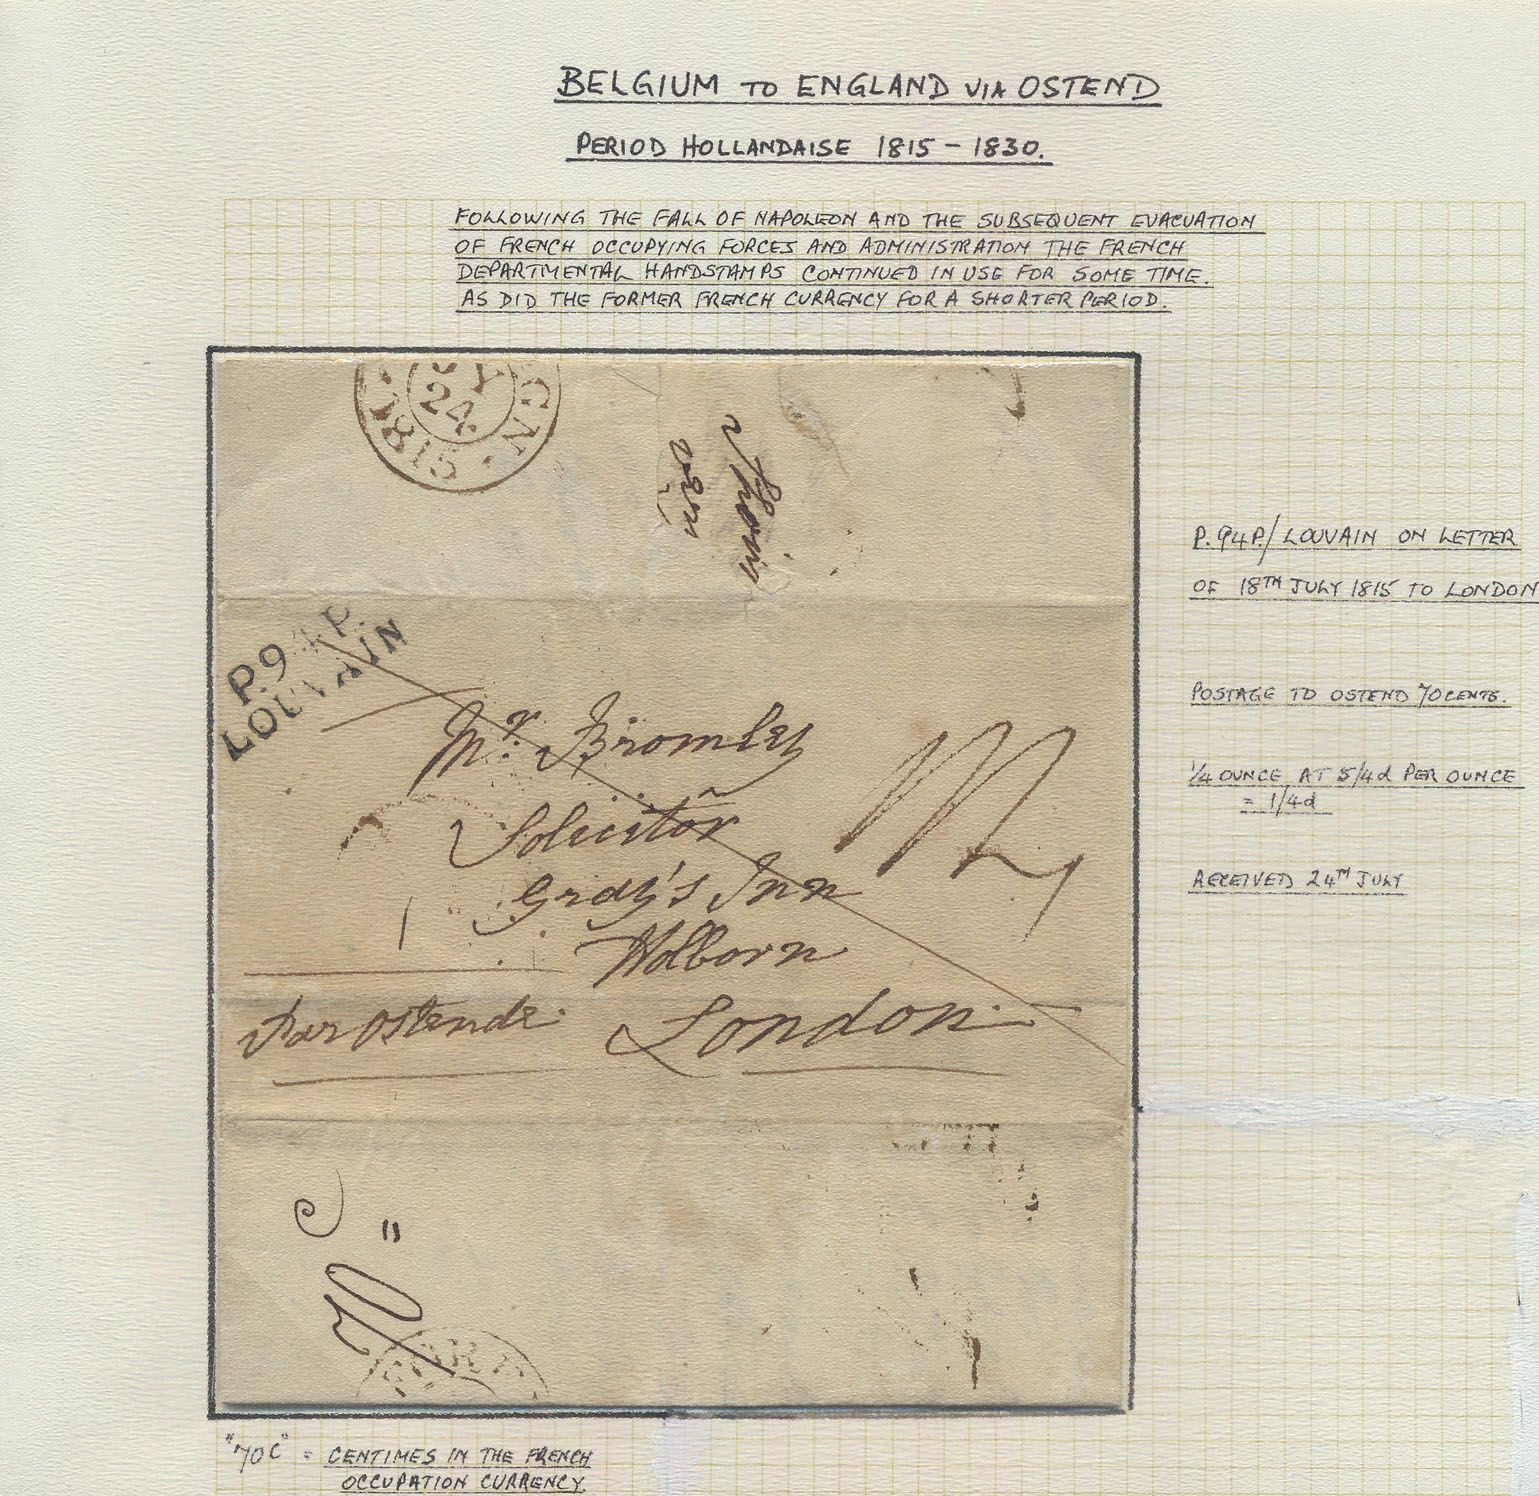 BELGIUM TO ENGLAND VIA OSTEND
PERIOD HOLLANDAISE 1815 - 1830.
FOLLOWING THE FALL OF NAPOLEON AND THE SUBSEQUENT EVACUATION
OF FRENCH OCCUPYING FORCES AND ADMINISTRATION THE FRENCH
DEPARTMENTAL HANDSTAMPS CONTINUED IN USE FOR SOME TIME.
AS DID THE FORMER FRENCH CURRENCY FOR A SHORTER PERIOD.
24
1815
P.94P.
LOUVAIN
Mr. Bromley
Solicitor
Gray's Inn
Holborn
London
Par Ostende
P.94P./LOUVAIN ON LETTER
OF 18TH JULY 1815 TO LONDON
POSTAGE TO OSTEND 70 CENTS.
1/4 OUNCE AT 5/4d PER OUNCE
= 1/4d
RECEIVED 24TH JULY
"70C" = CENTIMES IN THE FRENCH
OCCUPATION CURRENCY.